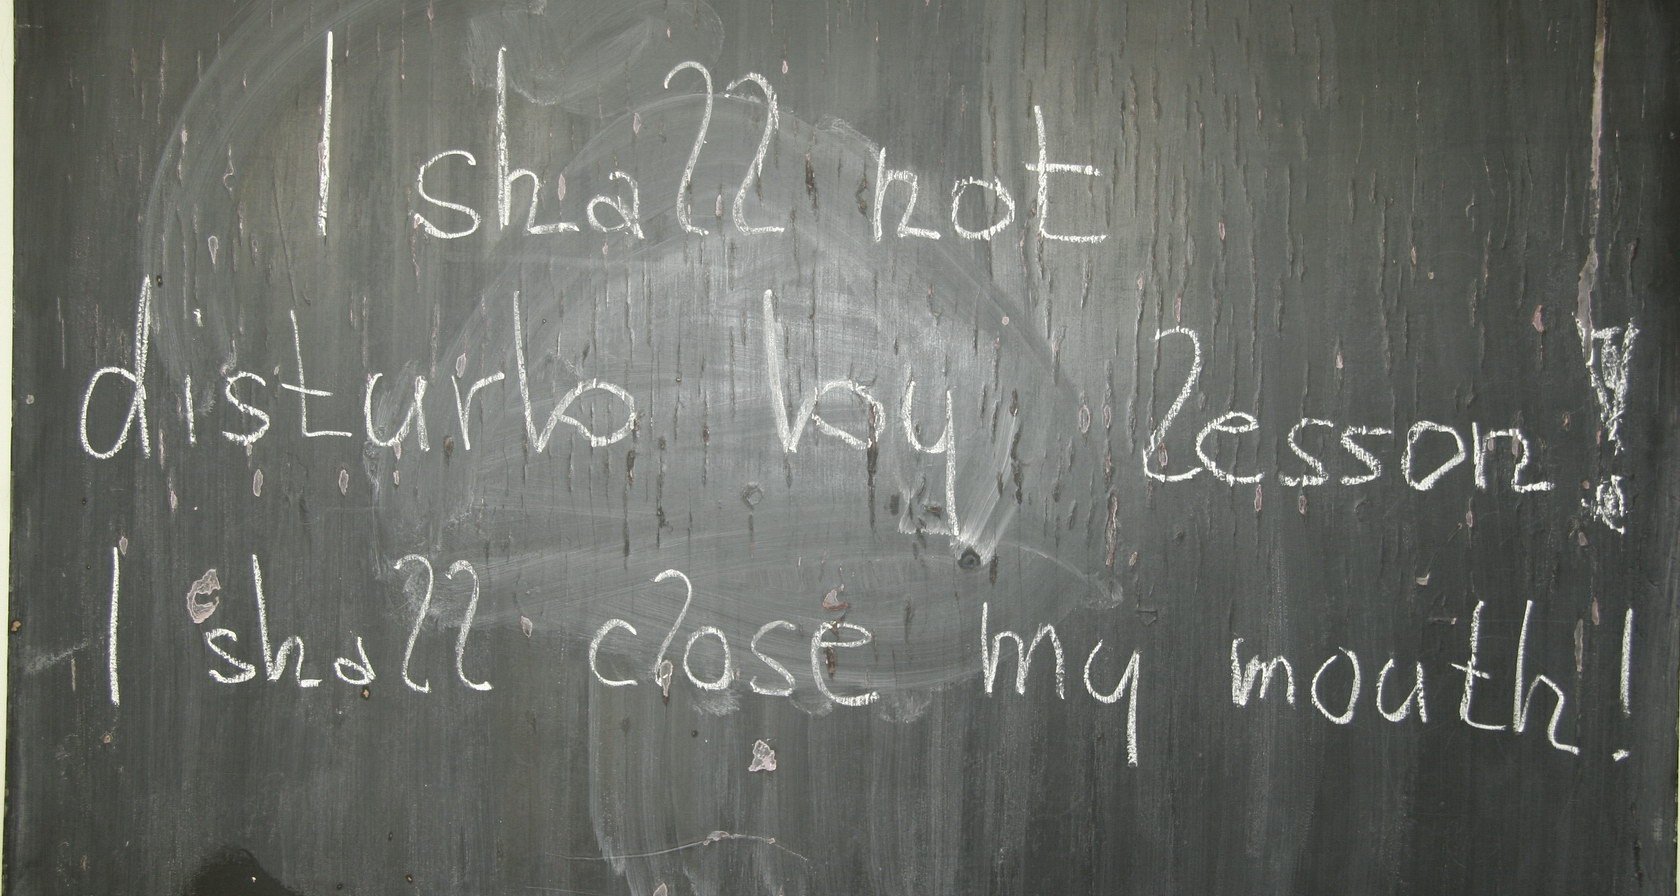 I shall not
disturb by lesson!
I shall close my mouth!